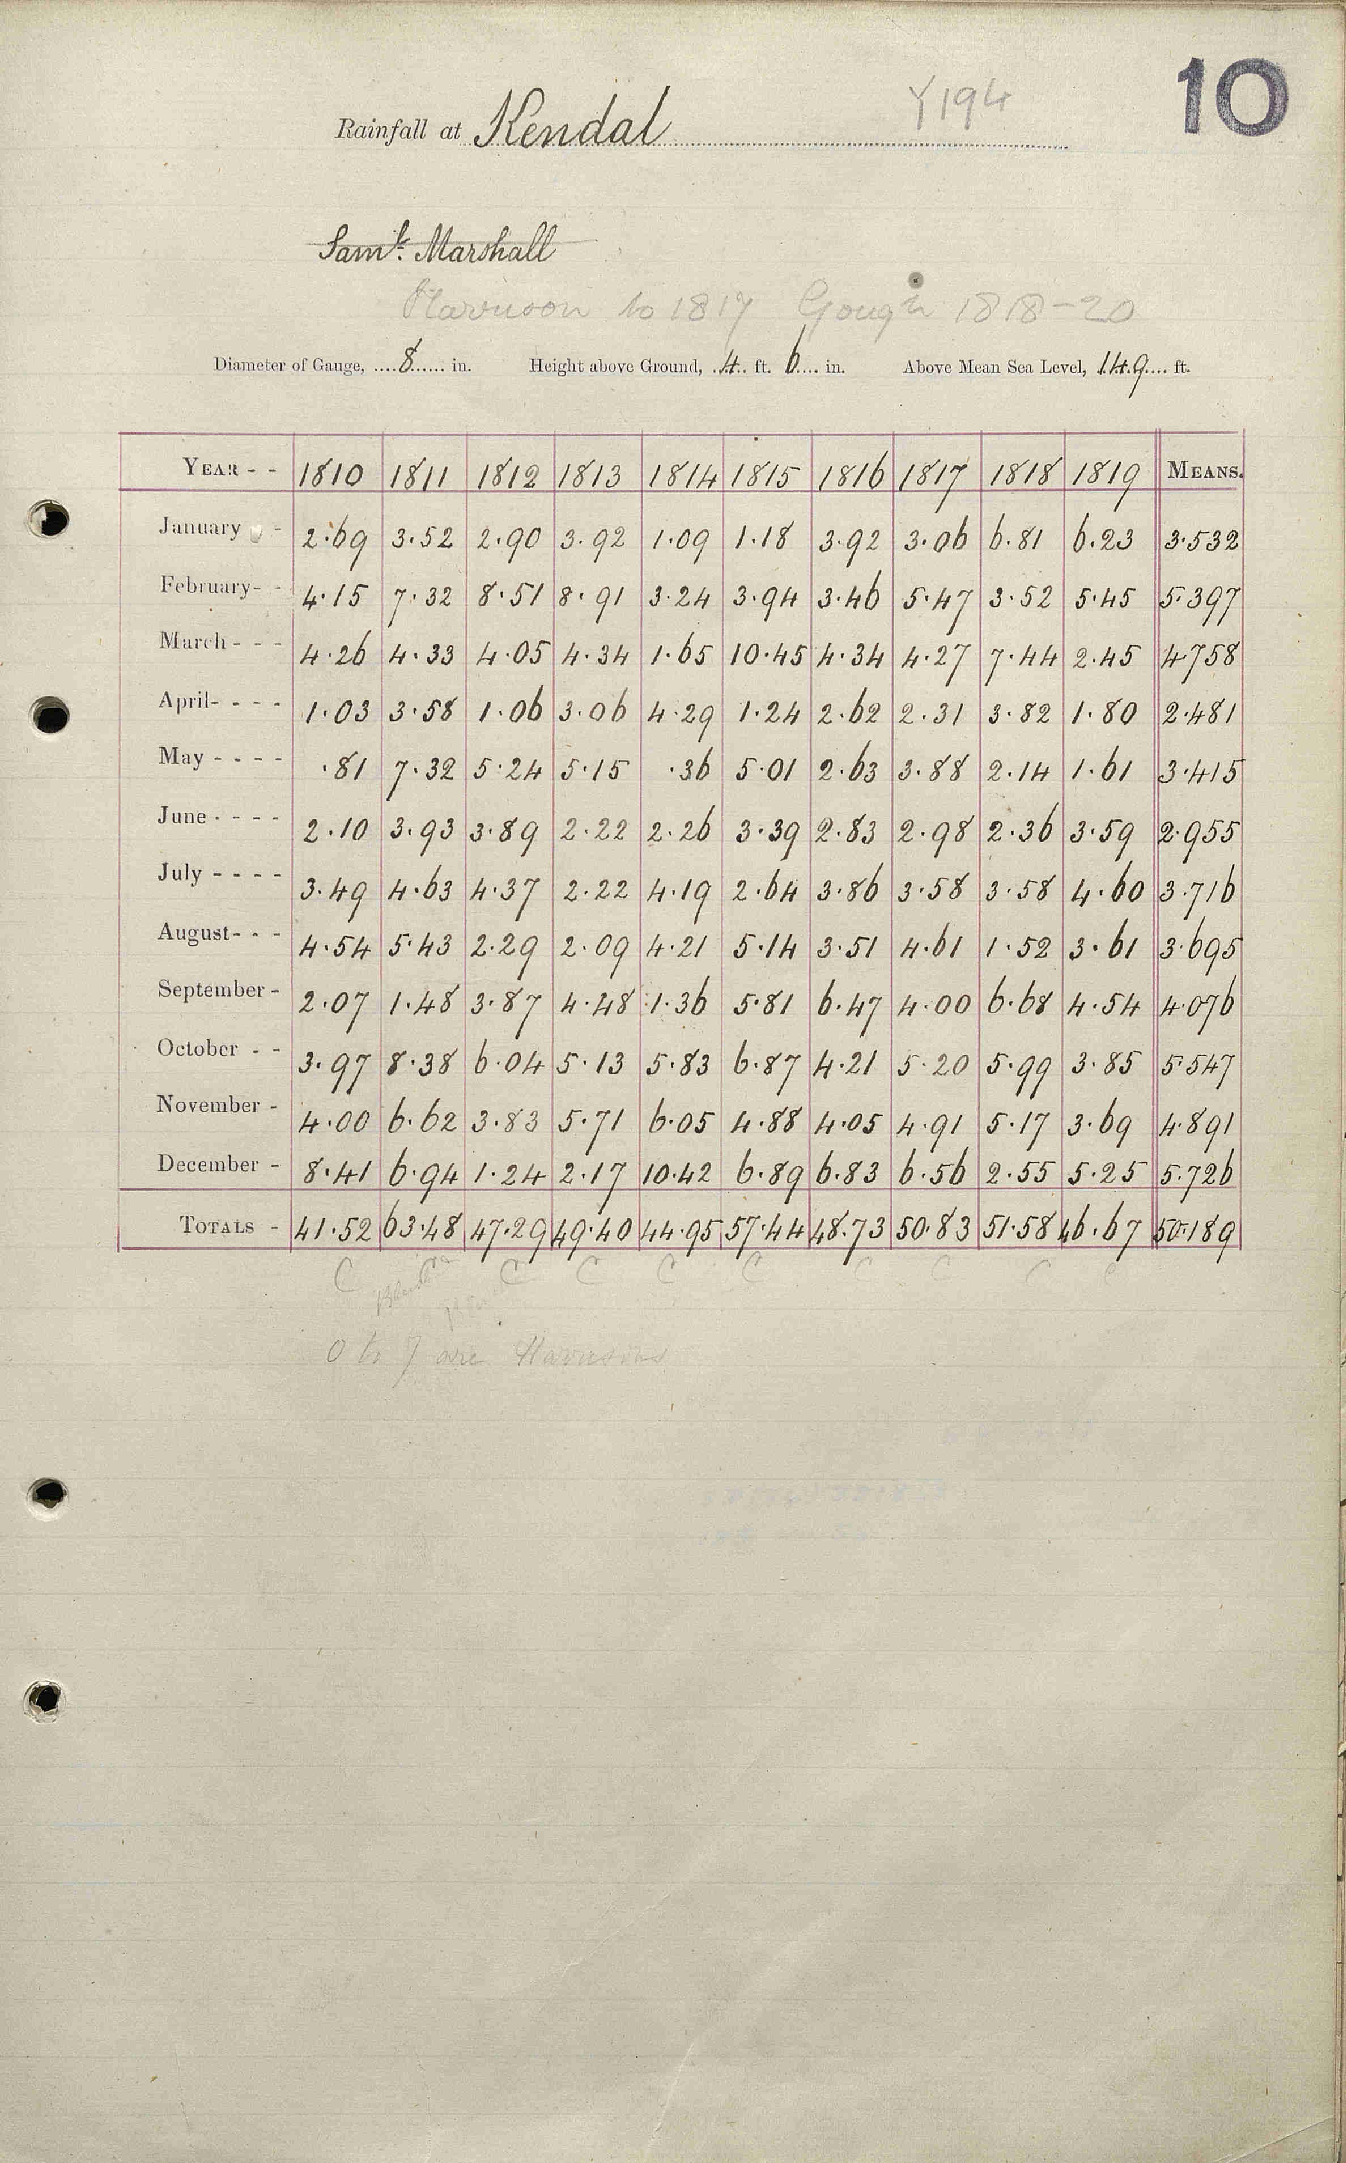 10
Y194
Rainfall at Kendal
Saml. Marshall
Harrison to 1817 Gough 1818-20
Diameter of Gauge, 8 in. Height above Ground, 4 ft. 6 in. Above Mean Sea Level, 149 ft.
YEAR - - 1810 1811 1812 1813 1814 1815 1816 1817 1818 1819 MEANS.
January - 2.69 3.52 2.90 3.92 1.09 1.18 3.92 3.06 6.81 6.23 3.532
February - - 4.15 7.32 8.51 8.91 3.24 3.94 3.46 5.47 3.52 5.45 5.397
March - - - 4.26 4.33 4.05 4.34 1.65 10.45 4.34 4.27 7.44 2.45 4.758
April - - - - 1.03 3.58 1.06 3.06 4.29 1.24 2.62 2.31 3.82 1.80 2.481
May - - - - .81 7.32 5.24 5.15 .36 5.01 2.63 3.88 2.14 1.61 3.415
June - - - - 2.10 3.93 3.89 2.22 2.26 3.39 2.83 2.98 2.36 3.59 2.955
July - - - - 3.49 4.63 4.37 2.22 4.19 2.64 3.86 3.58 3.58 4.60 3.716
August - - - 4.54 5.43 2.29 2.09 4.21 5.14 3.51 4.61 1.52 3.61 3.695
September - 2.07 1.48 3.87 4.48 1.36 5.81 6.47 4.00 6.68 4.54 4.076
October - - 3.97 8.38 6.04 5.13 5.83 6.87 4.21 5.20 5.99 3.85 5.547
November - 4.00 6.62 3.83 5.71 6.05 4.88 4.05 4.91 5.17 3.69 4.891
December - 8.41 6.94 1.24 2.17 10.42 6.89 6.83 6.56 2.55 5.25 5.726
TOTALS - 41.52 63.48 47.29 49.40 44.95 57.44 48.73 50.83 51.58 46.67 50.189
C C C C C C C C C
0 to 7 are Harrisons